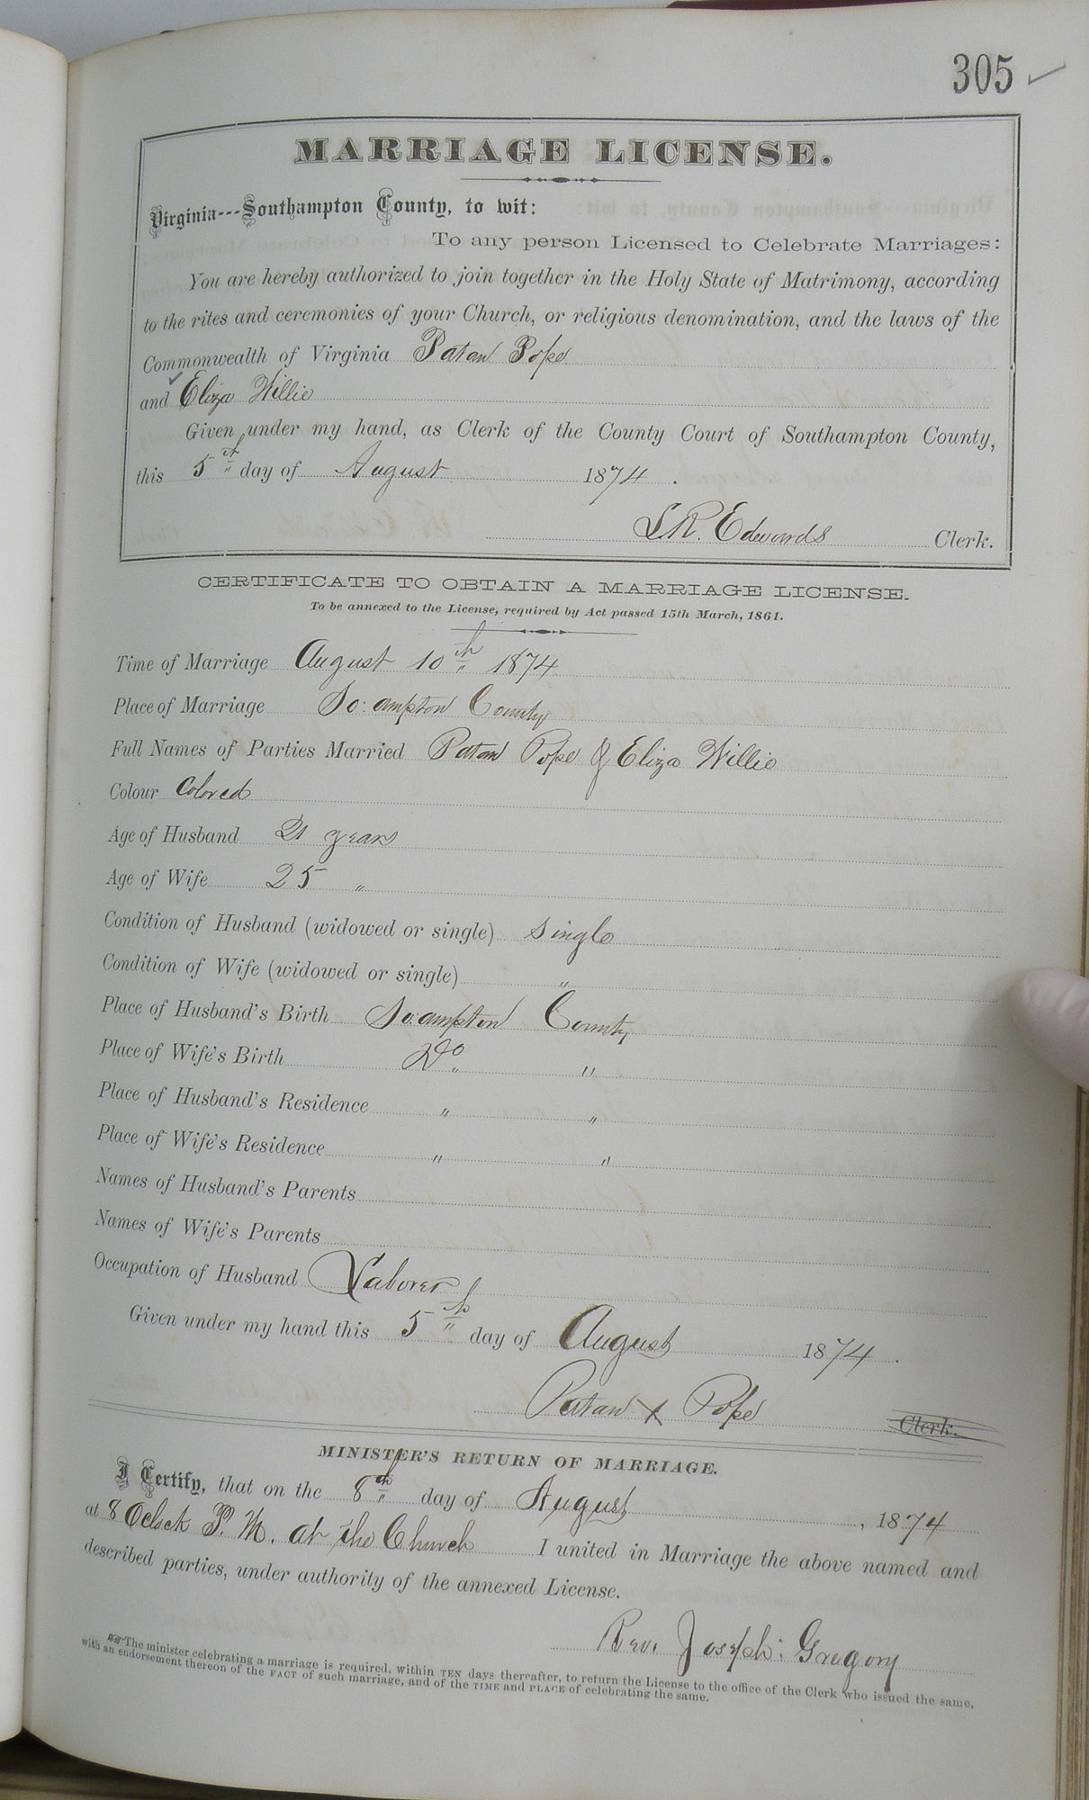 305
MARRIAGE LICENSE.
Virginia---Southampton County, to wit:
To any person Licensed to Celebrate Marriages:
You are hereby authorized to join together in the Holy State of Matrimony, according
to the rites and ceremonies of your Church, or religious denomination, and the laws of the
Commonwealth of Virginia Patan Pope
and Eliza Willie
Given under my hand, as Clerk of the County Court of Southampton County,
this 5th day of August 1874.
L. R. Edwards Clerk.
CERTIFICATE TO OBTAIN A MARRIAGE LICENSE.
To be annexed to the License, required by Act passed 15th March, 1861.
Time of Marriage August 10th 1874
Place of Marriage So:ampton County
Full Names of Parties Married Patan Pope & Eliza Willie
Colour Colored
Age of Husband 21 years
Age of Wife 25 "
Condition of Husband (widowed or single) Single
Condition of Wife (widowed or single) "
Place of Husband's Birth So:ampton County
Place of Wife's Birth Do "
Place of Husband's Residence " "
Place of Wife's Residence " "
Names of Husband's Parents
Names of Wife's Parents
Occupation of Husband Laborer
Given under my hand this 5th day of August 1874.
Patan x Pope Clerk.
MINISTER'S RETURN OF MARRIAGE.
I Certify, that on the 8th day of August, 1874
at 8 Oclock P. M. at the Church I united in Marriage the above named and
described parties, under authority of the annexed License.
Rev. Joseph: Gregory
The minister celebrating a marriage is required, within TEN days thereafter, to return the License to the office of the Clerk who issued the same,
with an endorsement thereon of the FACT of such marriage, and of the TIME and PLACE of celebrating the same.